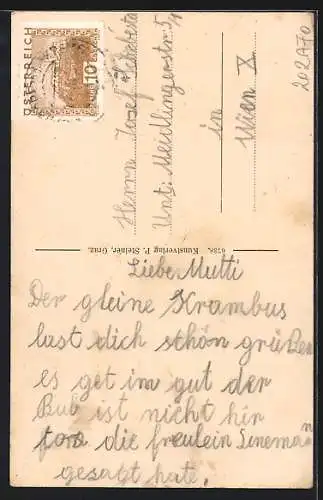 ÖSTERREICH
10
202A70
Herrn Josef
Unt: Meidlingerstr. 5/
in
Wien X
6758. Kunstverlag P. Steiner, Graz.
Liebe Mutti
Der gleine Krambus
last dich schön grüßen
es get im gut der
Bub ist nicht hir
die freulein Linemann
gesagt hate.